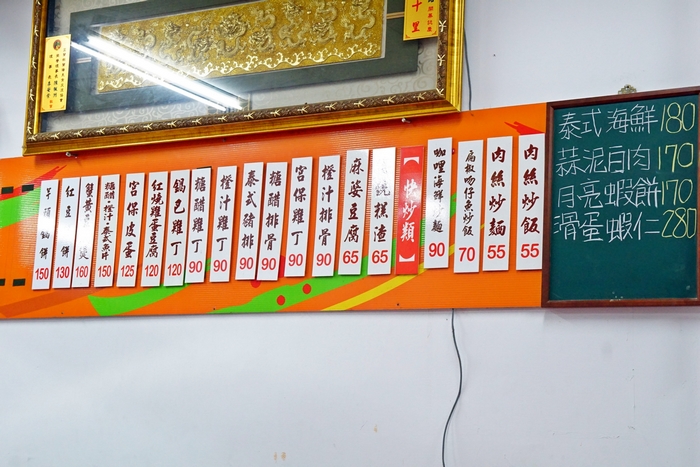 泰式海鮮180
蒜泥白肉170
月亮蝦餅170
滑蛋蝦仁280
肉絲炒飯 55
肉絲炒麵 55
吻仔魚炒飯 70
咖哩海鮮炒麵 90
【燒炒類】
糕渣 65
麻婆豆腐 65
橙汁排骨 90
宮保雞丁 90
糖醋排骨 90
泰式豬排 90
橙汁雞丁 90
糖醋雞丁 90
鍋巴雞丁 120
紅燒雞蛋豆腐 120
宮保皮蛋 125
糖醋橙汁泰式魚片 150
蟹黃 煲 160
紅豆 餅 130
芋頭鍋餅 150